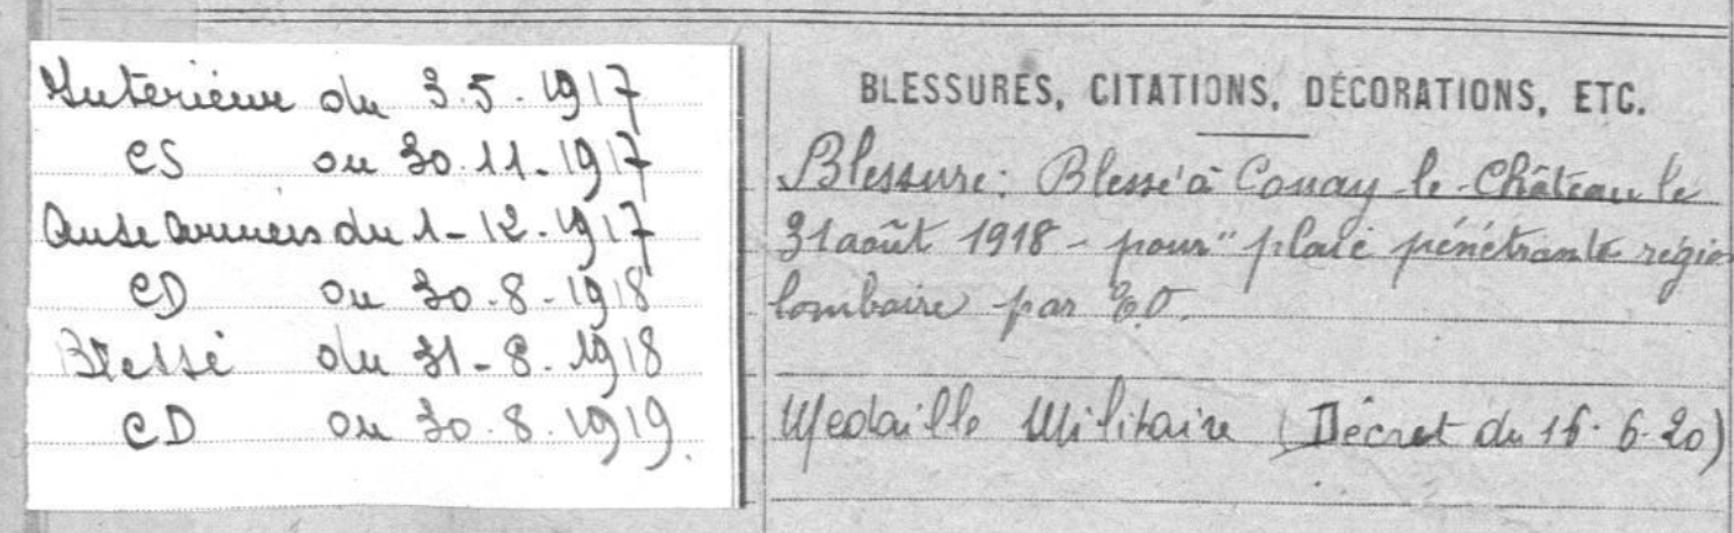 Intérieur du 3.5.1917
CS au 30.11.1917
Aux Armées du 1-12-1917
CD au 30-8-1918
Blessé du 31-8-1918
CD au 30.8.1919.
BLESSURES, CITATIONS, DÉCORATIONS, ETC.
Blessure: Blessé à le-Château le
31 août 1918 - pour "plaie pénétrante régio
lombaire par
Medaille Militaire (Décret du 16.6.20)